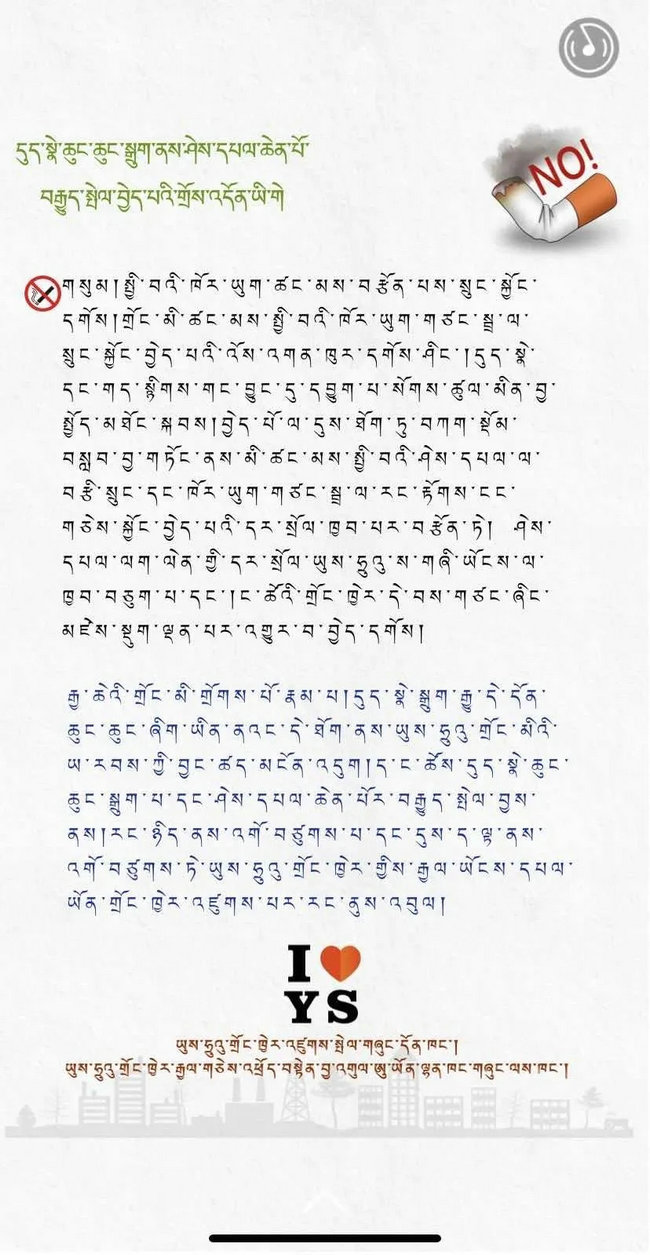 དུད་སྣེ་ཆུང་ཆུང་སྒྲུག་ནས་ཤེས་དཔལ་ཆེན་པོ་
བརྒྱུད་སྤེལ་བྱེད་པའི་གྲོས་འདོན་ཡི་གེ
NO!
གསུམ། སྤྱི་བའི་ཁོར་ཡུག་ཚང་མས་བརྩོན་པས་སྲུང་སྐྱོང་
དགོས། གྲོང་མི་ཚང་མས་སྤྱི་བའི་ཁོར་ཡུག་གཙང་སྦྲ་ལ་
སྲུང་སྐྱོང་བྱེད་པའི་འོས་འགན་ཁུར་དགོས་ཤིང་། དུད་སྣེ་
དང་གད་སྙིགས་གང་བྱུང་དུ་དབྱུག་པ་སོགས་ཚུལ་མིན་བྱ་
སྤྱོད་མཐོང་སྐབས། བྱེད་པོ་ལ་དུས་ཐོག་ཏུ་བཀག་སྡོམ་
བསླབ་བྱ་གཏོང་ནས་མི་ཚང་མས་སྤྱི་བའི་ཤེས་དཔལ་ལ་
བརྩི་སྲུང་དང་ཁོར་ཡུག་གཙང་སྦྲ་ལ་རང་རྟོགས་ངང་
གཅེས་སྐྱོང་བྱེད་པའི་དར་སྲོལ་ཁྱབ་པར་བརྩོན་ཏེ། ཤེས་
དཔལ་ལག་ལེན་གྱི་དར་སྲོལ་ཡུས་ཧྲུའུ་ས་གཞི་ཡོངས་ལ་
ཁྱབ་བཅུག་པ་དང་། ང་ཚོའི་གྲོང་ཁྱེར་དེ་བས་གཙང་ཞིང་
མཛེས་སྡུག་ལྡན་པར་འགྱུར་བ་བྱེད་དགོས།
རྒྱ་ཆེའི་གྲོང་མི་གྲོགས་པོ་རྣམ་པ། དུད་སྣེ་སྒྲུག་རྒྱུ་དེ་དོན་
ཆུང་ཆུང་ཞིག་ཡིན་ནའང་དེ་ཐོག་ནས་ཡུས་ཧྲུའུ་གྲོང་མིའི་
ཡ་རབས་ཀྱི་བྱང་ཚད་མངོན་འདུག ད་ང་ཚོས་དུད་སྣེ་ཆུང་
ཆུང་སྒྲུག་པ་དང་ཤེས་དཔལ་ཆེན་པོར་བརྒྱུད་སྤེལ་བྱས་
ནས། རང་ཉིད་ནས་འགོ་བཙུགས་པ་དང་དུས་ད་ལྟ་ནས་
འགོ་བཙུགས་ཏེ་ཡུས་ཧྲུའུ་གྲོང་ཁྱེར་གྱིས་རྒྱལ་ཡོངས་དཔལ་
ཡོན་གྲོང་ཁྱེར་འཛུགས་པར་རང་ནུས་འབུལ།
I
YS
ཡུས་ཧྲུའུ་གྲོང་ཁྱེར་འཛུགས་སྤེལ་གཞུང་དོན་ཁང་།
ཡུས་ཧྲུའུ་གྲོང་ཁྱེར་རྒྱལ་གཅེས་འཕྲོད་བསྟེན་བྱ་འགུལ་ཨུ་ཡོན་ལྷན་ཁང་གཞུང་ལས་ཁང་།